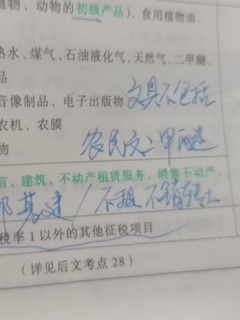 植物、动物的初级产品）、食用植物油、
热水、煤气、石油液化气、天然气、二甲醚、
品
音像制品、电子出版物 文具不包括
农机、农膜
物 农民文二甲醚
信、建筑、不动产租赁服务、销售不动产、
邮基建 / 不租不销
税率 1 以外的其他征税项目
（详见后文考点 28）